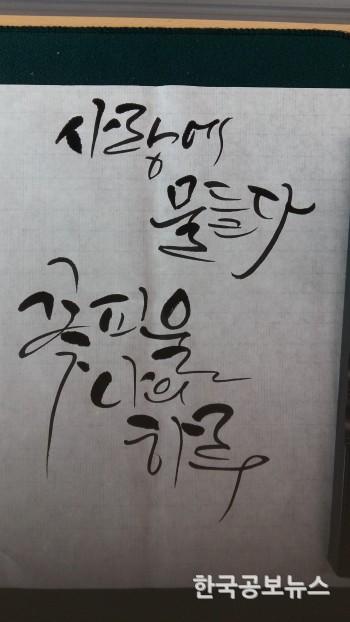 사랑에
물들다
꽃피울
나의
하루
한국공보뉴스